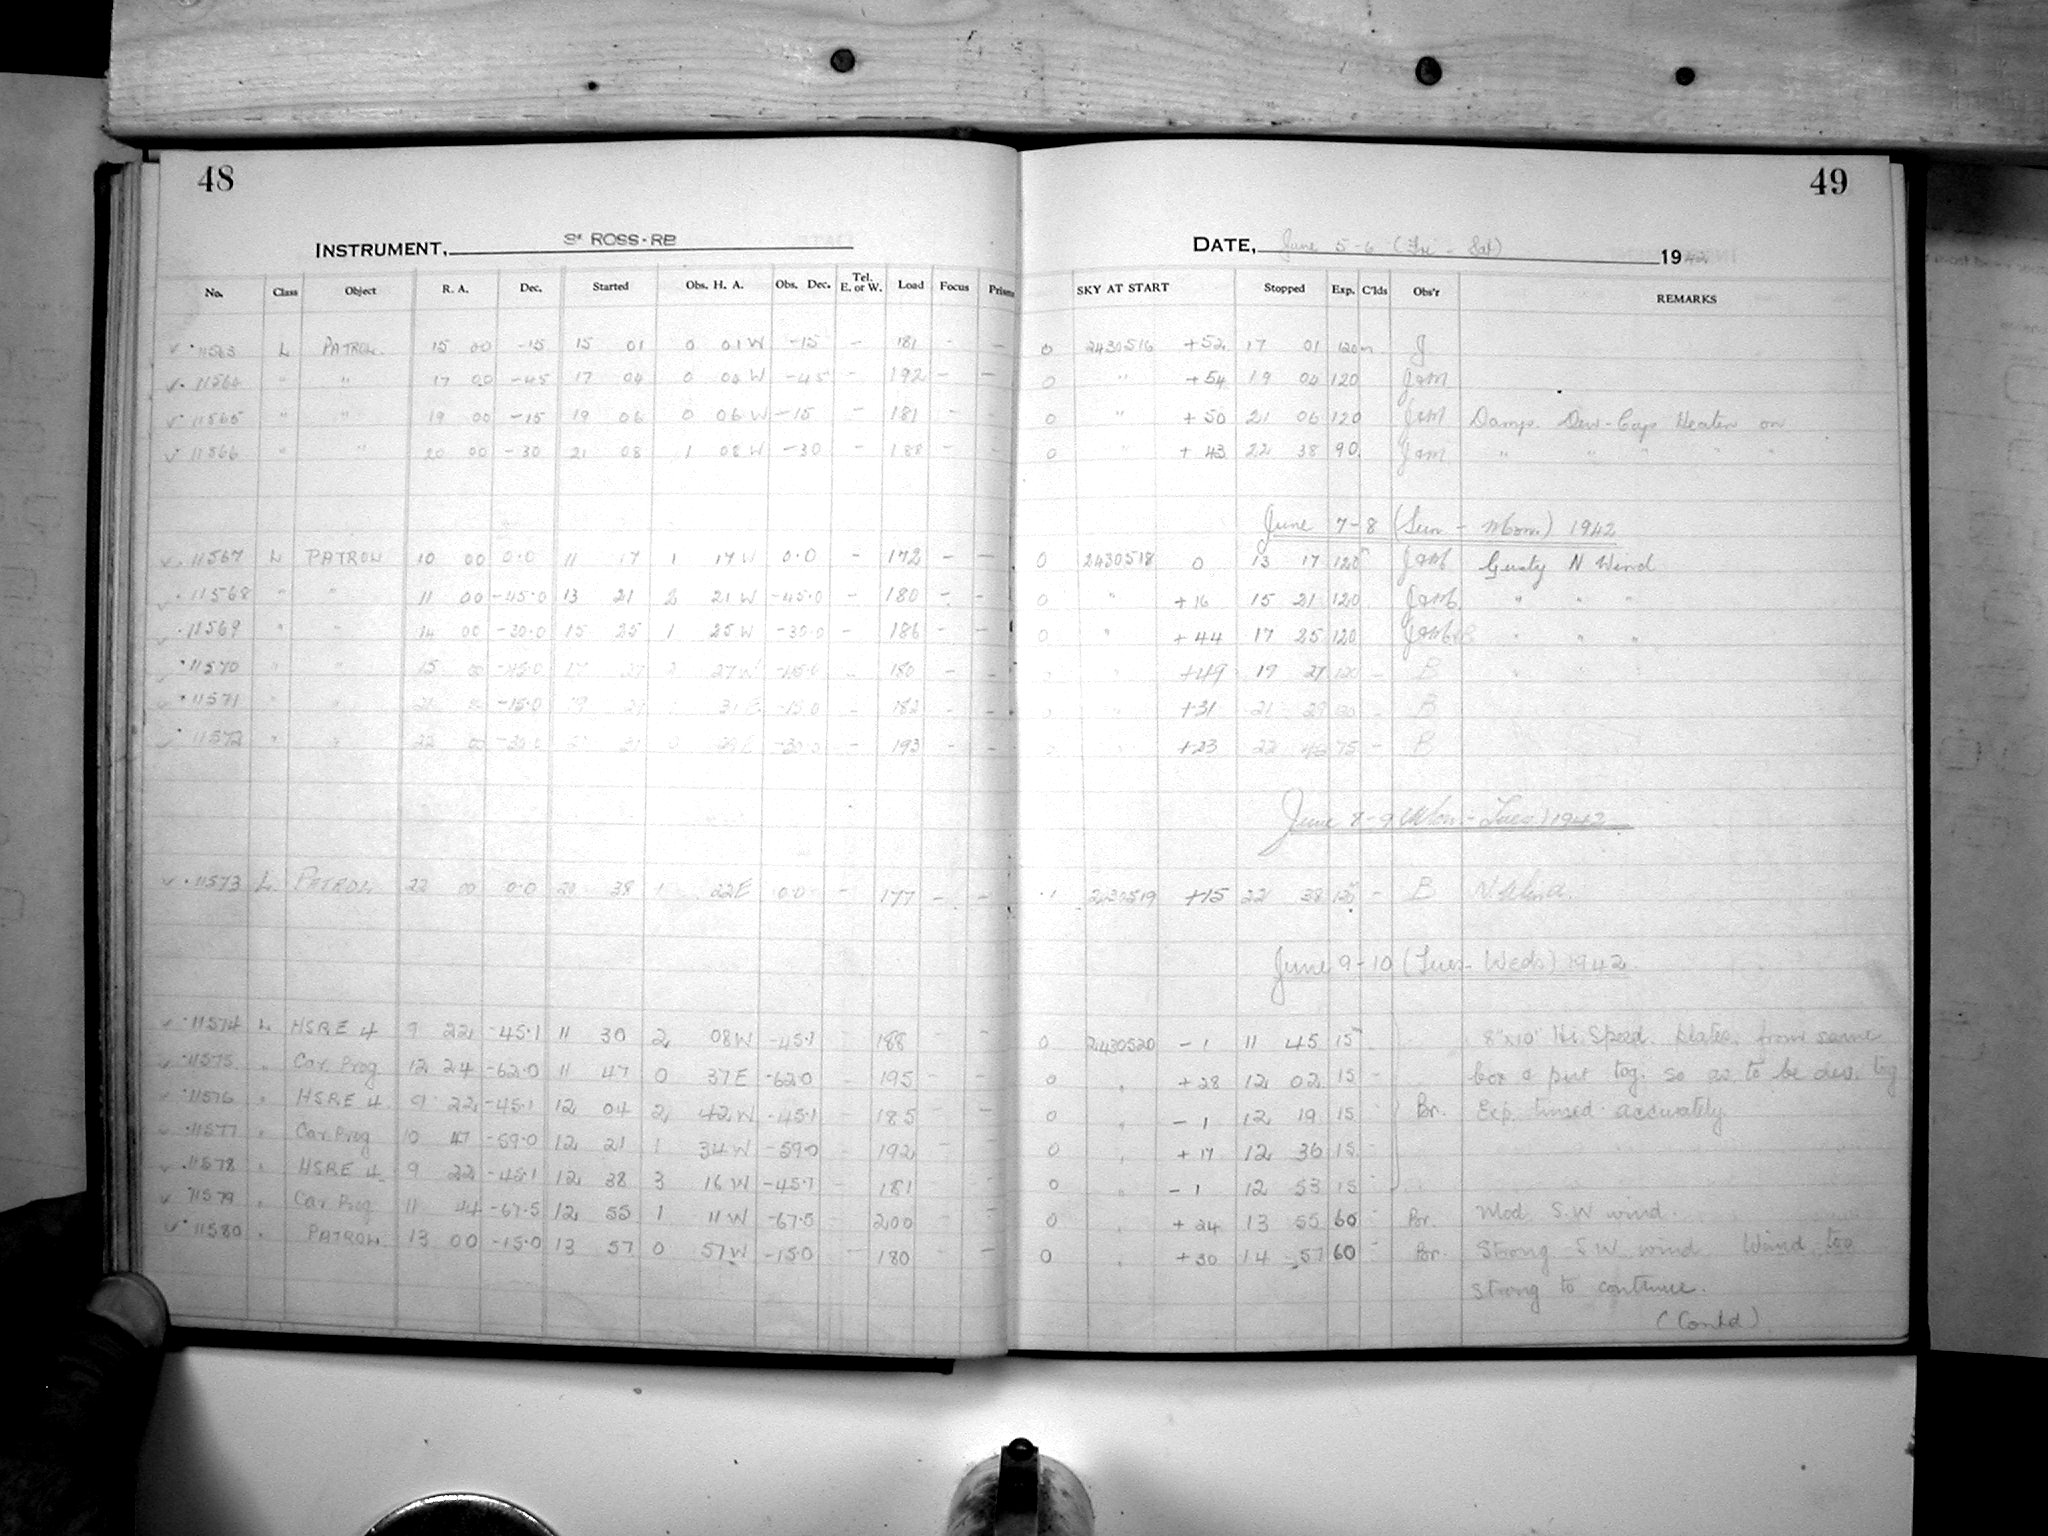 48
INSTRUMENT, ROSS-RB
No. Class Object R. A. Dec. Started Obs. H. A. Obs. Dec. Tel. E. or W. Load Focus Prism
11563 L PATROL 15 00 -15 15 01 0 01 W -15 - 181 - -
11564 " " 17 00 -45 17 04 0 04 W -45 - 192 - -
11565 " " 19 00 -15 19 06 0 06 W -15 - 181 - -
11566 " " 20 00 -30 21 08 1 08 W -30 - 188 - -
11567 L PATROL 10 00 0.0 11 17 1 17 W 0.0 - 172 - -
11568 " " 11 00 -45.0 13 21 2 21 W -45.0 - 180 - -
11569 " " 14 00 -30.0 15 25 1 25 W -30.0 - 186 - -
11570 " " 15 00 -45.0 17 27 2 27 W -45.0 - 180 - -
11571 " " 21 00 -15.0 19 29 31 E -15.0 - 182 - -
11572 " " 22 00 -30.0 21 31 E -30.0 - 193 - -
11573 L PATROL 22 00 0.0 20 38 1 22 E 0.0 - 177 - -
11574 L HSRE 4 9 22 -45.1 11 30 2 08 W -45.1 188 - -
11575 " Car. Prog 12 24 -62.0 11 47 0 37 E -62.0 195 - -
11576 " HSRE 4 9 22 -45.1 12 04 2 42 W -45.1 185 - -
11577 " Car. Prog 10 47 -59.0 12 21 1 34 W -59.0 192 - -
11578 " HSRE 4 9 22 -45.1 12 38 3 16 W -45.1 181 - -
11579 " Car Prog 11 44 -67.5 12 55 1 11 W -67.5 200 - -
11580 " PATROL 13 00 -15.0 13 57 0 57 W -15.0 - 180 - -
49
DATE, June 5-6 (Fri - Sat) 1942
SKY AT START Stopped Exp. C'lds Obs'r REMARKS
0 2430516 +52 17 01 120m J
0 " +54 19 04 120 JaM
0 " +50 21 06 120 JaM Damp. Dew-Cap Heater on
0 " +43 22 38 90 JaM " " " " "
June 7-8 (Sun - Mon.) 1942
0 2430518 0 13 17 120m JaM Gusty N Wind
0 " +16 15 21 120 JaM " " "
0 " +44 17 25 120 " " "
" +49 19 27 120 - B " "
" +31 21 29 120 - B
0 " +23 22 46 75 - B
June 8-9 (Mon - Tues) 1942
1 2430519 +15 22 38 120m - B N Wind.
June 9-10 (Tues - Weds) 1942
0 2430520 -1 11 45 15m - 8"x10" Hi. Speed. Plates from same
0 " +28 12 02 15 - box & put tog. so as to be dev. tog
0 " -1 12 19 15 Br. Exp. timed accurately
0 " +17 12 36 15
0 " -1 12 53 15
0 " +24 13 55 60 - Br. Mod. S.W wind.
0 " +30 14 57 60 - Br. Strong S.W. wind. Wind too
strong to continue.
(Contd)